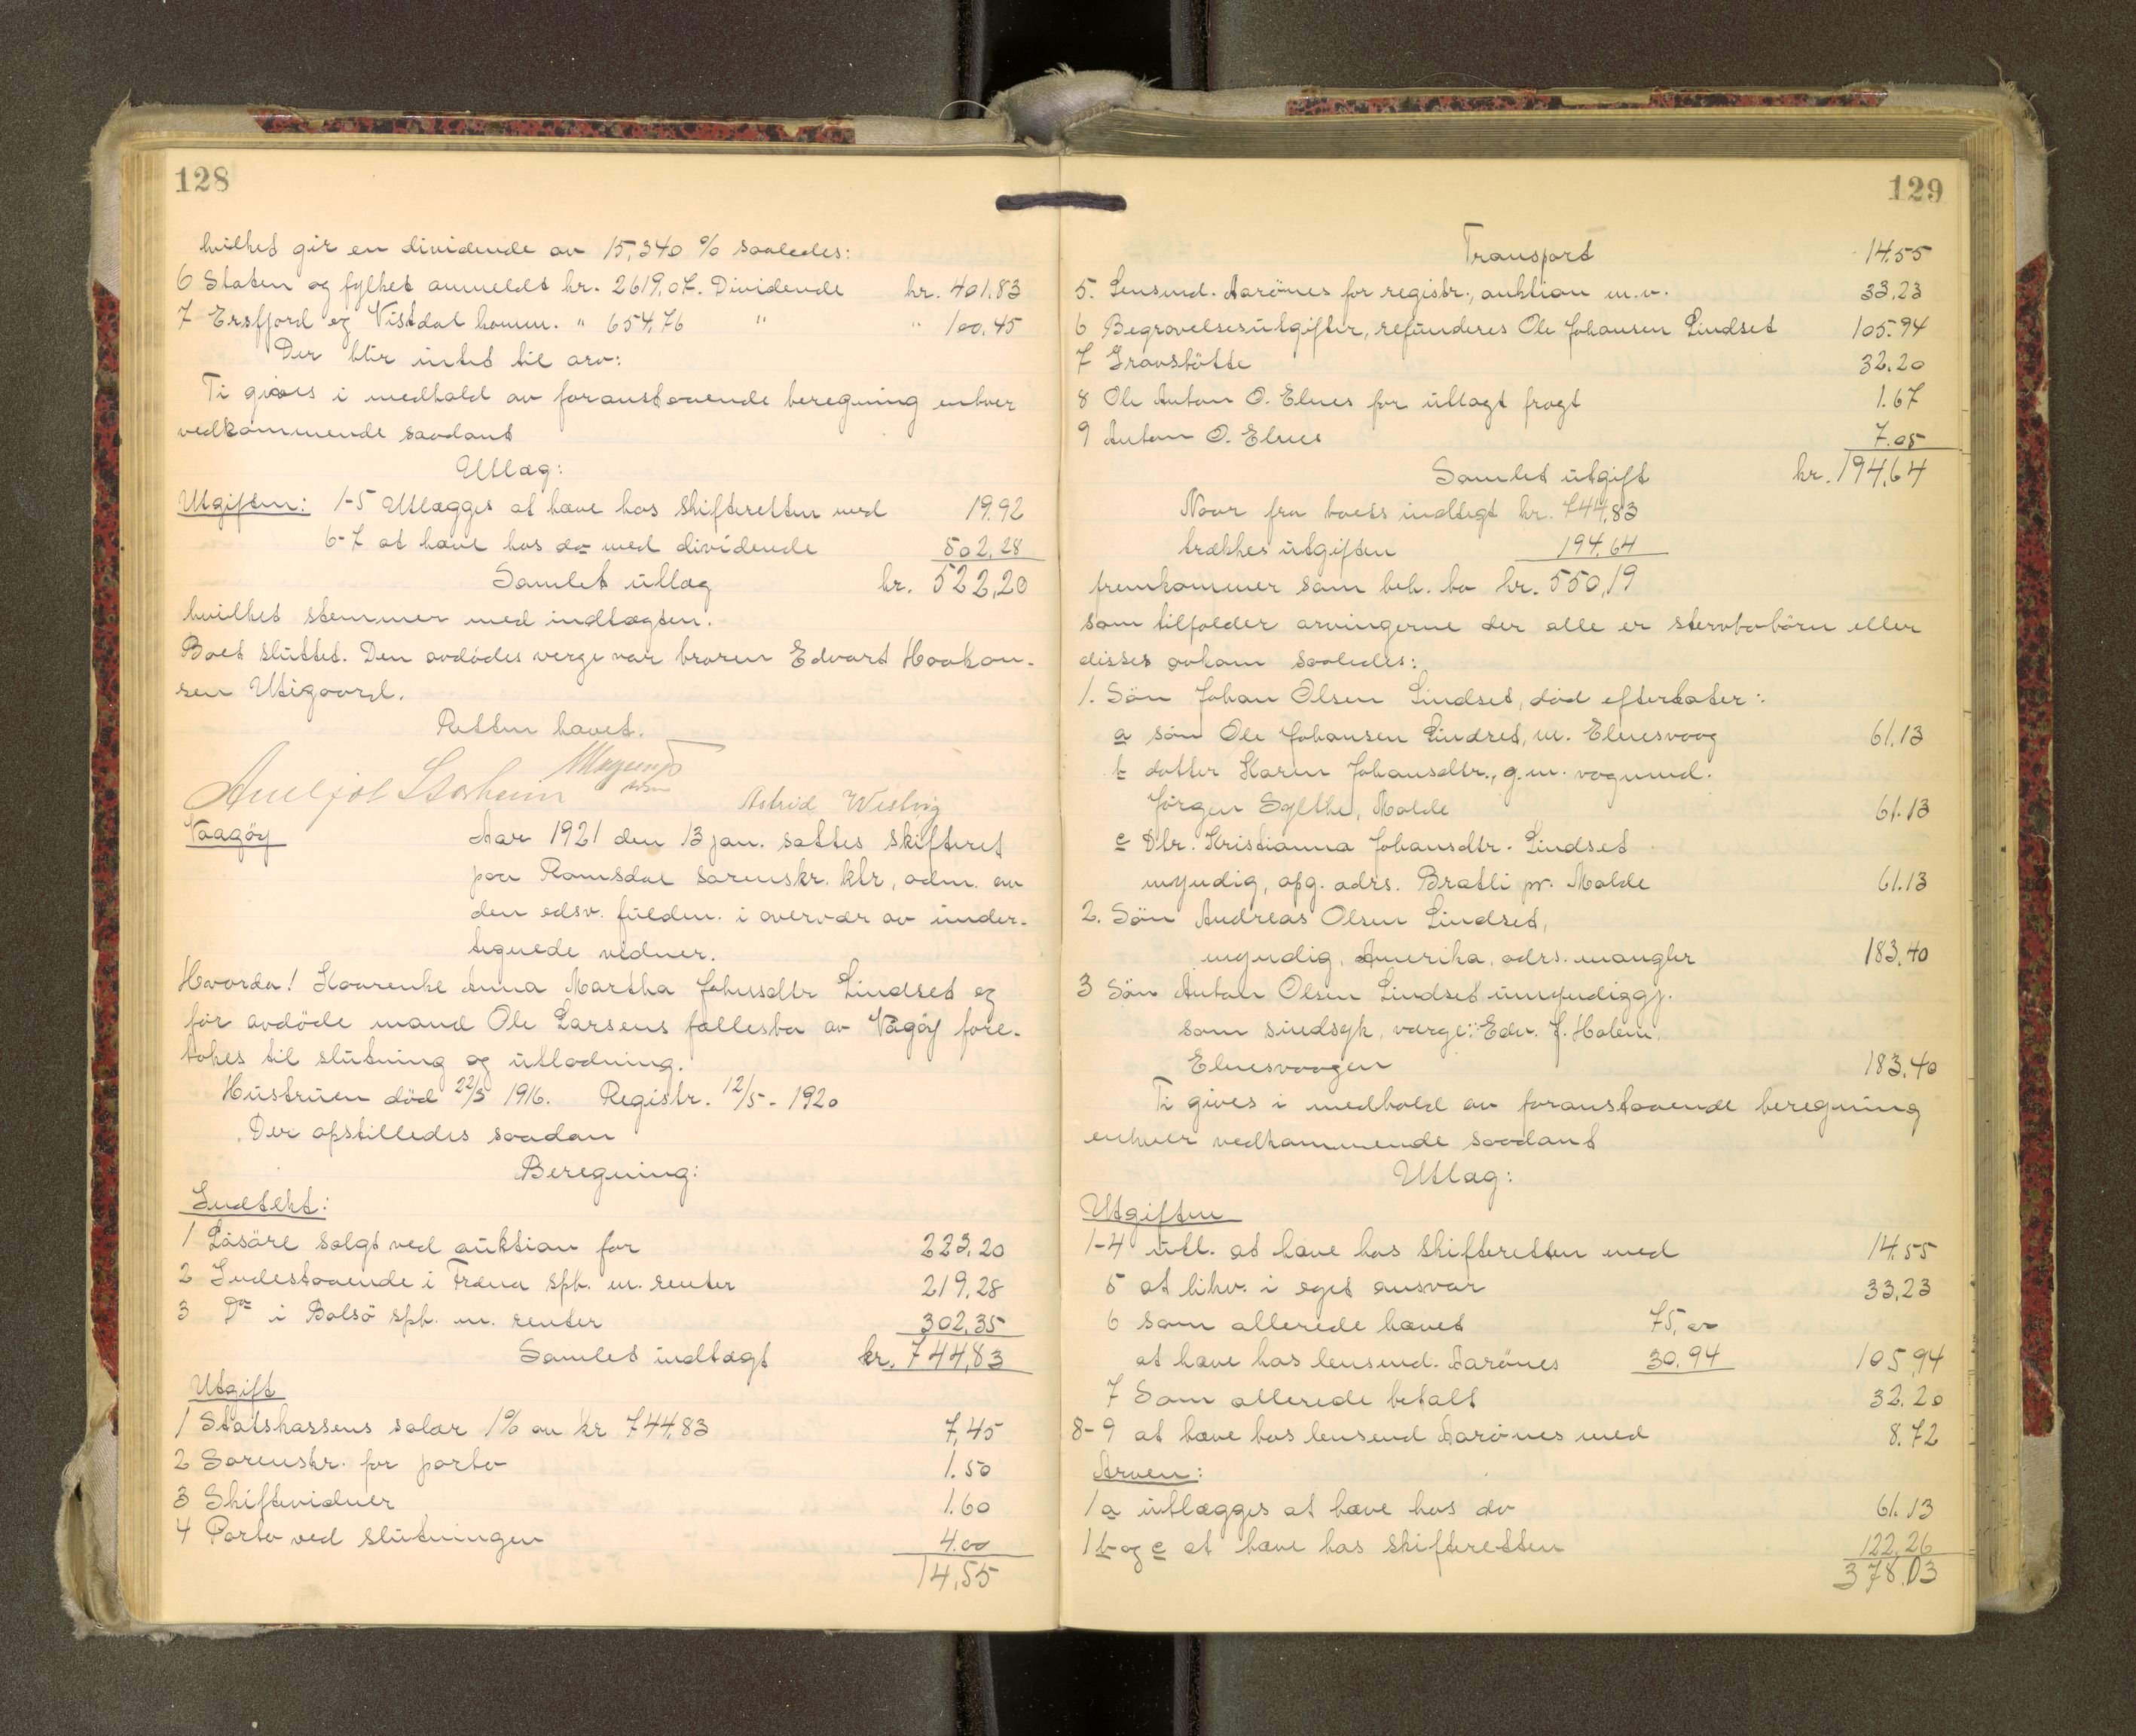 128
hvilket gir en dividende av 15,340 % saaledes:
6 Staten og fylket anmeldt kr. 2619,07. Dividende kr. 401.83
7 Eresfjord og Vistdal komm. " 654,76 " " 100,45
Der blir intet til arv:
Ti gives i medhold av foranstaaende beregning enhver
vedkommende saadant
Utlæg:
Utgiften: 1-5 Utlægges at hæve hos skifteretten med 19.92
6-7 at hæve hos do med dividende 502,28
Samlet utlæg kr. 522,20
hvilket stemmer med indtægten.
Boet sluttet. Den avdødes verge var broren Edvart Haakon-
sen Utigaard.
Retten hævet.
Astrid Westvig
Vaagøy
Aar 1921 den 13 jan. sattes skifteret
paa Romsdal sorenskr. ktr, adm. av
den edsv. fuldm. i overvær av under-
tegnede vidner.
Hvorda! Kaarenke Anna Martha Johnsdtr Lindset og
før avdøde mand Ole Larsens fællesbo av Vågøy fore-
tokes til slutning og utlodning.
Hustruen död 22/3 1916. Registr. 12/5 - 1920
Der opstilledes saadan
Beregning:
Indtekt:
1 Løsøre solgt ved auktion for 223,20
2 Indestaaende i Fræna spb. m. renter 219,28
3 Do i Bolsø spb. m. renter 302,35
Samlet indtægt kr. 744,83
Utgift
1 Statskassens salær 1% av kr 744,83 7,45
2 Sorenskr. for porto 1.50
3 Skiftevidner 1.60
4 Porto ved slutningen 4.00
14,55
129
Transport 14.55
5. Lensmd. Aarönes for registr., auktion m.v. 33,23
6 Begravelsesutgifter, refunderes Ole Johansen Lindset 105.94
7 Gravstötte 32.20
8 Ole Anton O. Elnes for utlagt fragt 1.67
9 Anton O. Elnes 7.05
Samlet utgift kr. 194,64
Naar fra boets indtægt kr. 744,83
trækkes utgiften 194,64
fremkommer som beh. bo kr. 550,19
som tilfalder arvingerne der alle er stervbobörn eller
disses avkom saaledes:
1. Sön Johan Olsen Lindset, död efterlater:
a sön Ole Johansen Lindset, m. Elnesvaag 61.13
b datter Karen Johansdtr., g.m. vognmd.
Jörgen Sylthe, Molde 61.13
c Dtr. Kristianna Johansdtr. Lindset
myndig, opg. adrs. Bratli pr. Molde 61.13
2. Sön Andreas Olsen Lindset,
myndig, Amerika, adrs. mangler 183,40
3 Sön Anton Olsen Lindset umyndiggj.
som sindsyk, værge: Edv. J. Holem,
Elnesvaagen 183.40
Ti gives i medhold av foranstaaende beregning
enhver vedkommende saadant
Utlæg:
Utgiften
1-4 utl. at hæve hos skifteretten med 14.55
5 at likv. i eget ansvar 33,23
6 som allerede hævet 75,00
at hæve hos lensmd. Aarönes 30,94 105,94
7 Som allerede betalt 32.20
8-9 at hæve hos lensmd Aarönes med 8.72
Arven:
1 a utlægges at hæve hos do 61.13
1 b og c at hæve hos skifteretten 122,26
378.03